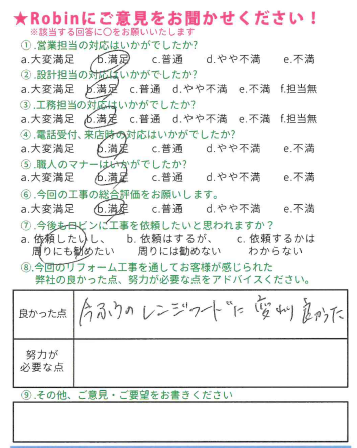 ★Robinにご意見をお聞かせください！
※該当する回答に〇をお願いいたします
①.営業担当の対応はいかがでしたか?
a.大変満足 b.満足 c.普通 d.やや不満 e.不満
②.設計担当の対応はいかがでしたか?
a.大変満足 b.満足 c.普通 d.やや不満 e.不満 f.担当無
③.工務担当の対応はいかがでしたか?
a.大変満足 b.満足 c.普通 d.やや不満 e.不満 f.担当無
④.電話受付、来店時の対応はいかがでしたか?
a.大変満足 b.満足 c.普通 d.やや不満 e.不満
⑤.職人のマナーはいかがでしたか?
a.大変満足 b.満足 c.普通 d.やや不満 e.不満
⑥.今回の工事の総合評価をお願いします。
a.大変満足 b.満足 c.普通 d.やや不満 e.不満
⑦.今後もロビンに工事を依頼したいと思われますか？
a. 依頼したいし、 b. 依頼はするが、 c. 依頼するかは
周りにも勧めたい 周りには勧めない わからない
⑧.今回のリフォーム工事を通してお客様が感じられた
弊社の良かった点、努力が必要な点をアドバイスください。
良かった点 今ふうのレンジフードに変わり良かった
努力が
必要な点
⑨.その他、ご意見・ご要望をお書きください